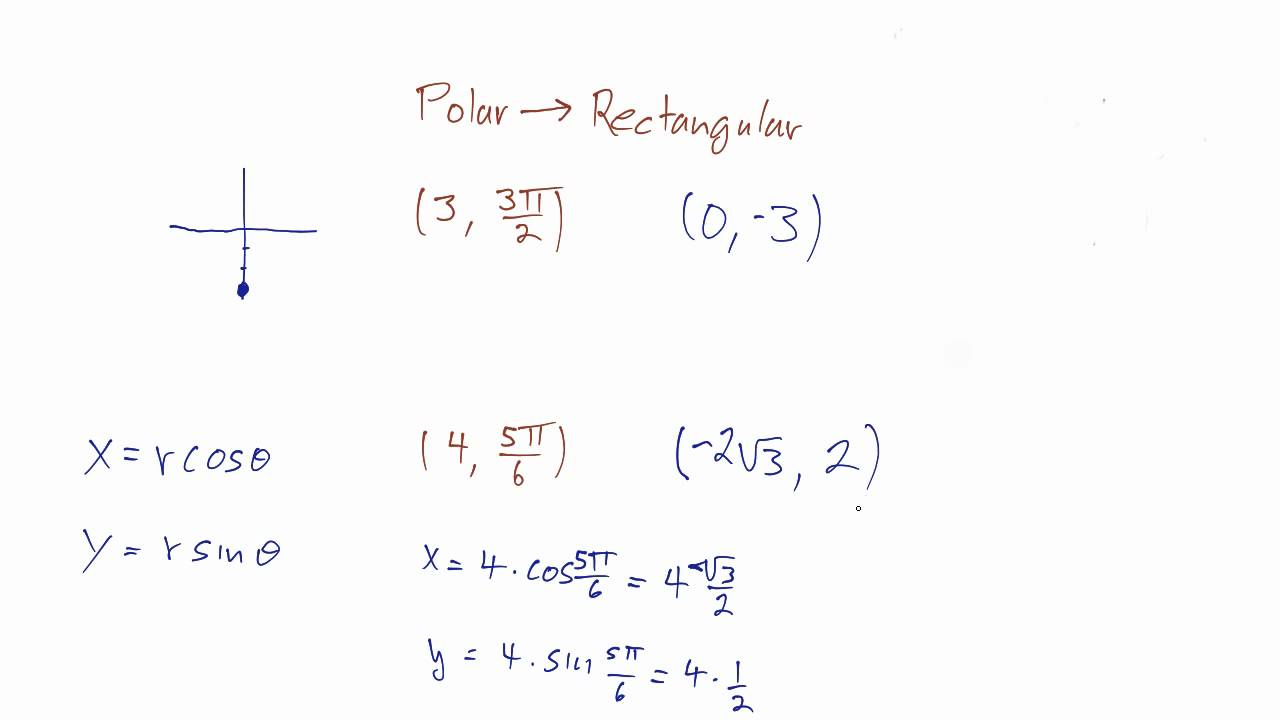 Polar → Rectangular
(3, 3π/2) (0, -3)
x = r cosθ (4, 5π/6) (-2√3, 2)
y = r sinθ
x = 4 · cos 5π/6 = 4 · -√3/2
y = 4 · sin 5π/6 = 4 · 1/2